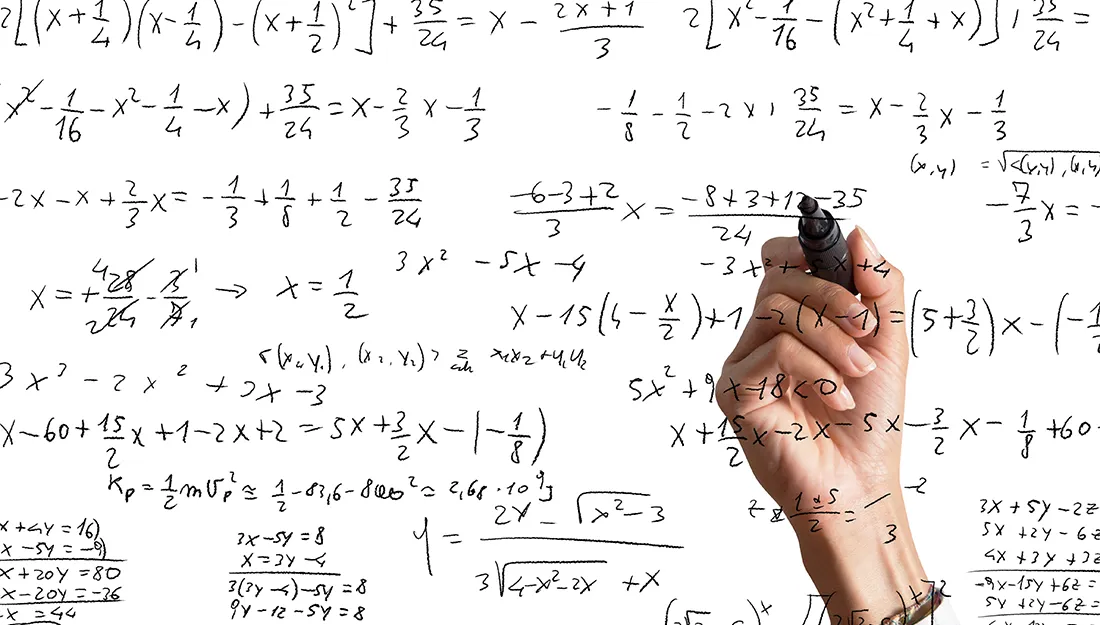 2[(x+1/4)(x-1/4)-(x+1/2)²]+35/24=x-(2x+1)/3
2[x²-1/16-(x²+1/4+x)]+35/24=
x²-1/16-x²-1/4-x)+35/24=x-2/3x-1/3
-1/8-1/2-2x+35/24=x-2/3x-1/3
(x,y) =√<(x,y),(x,y)
-2x-x+2/3x=-1/3+1/8+1/2-35/24
(-6-3+2)/3x=(-8+3+12-35)/24
-7/3x=-
3x²-5x-4
-3x²+5x+4
x=+28/24·3/7→x=1/2
x-15(4-x/2)+1-2(x-1)=(5+3/2)x-(-1
<(x₁,y₁),(x₂,y₂)> = x₁x₂+y₁y₂
3x³-2x²+3x-3
5x²+9x-18<0
x-60+15/2x+1-2x+2=5x+3/2x-(-1/8)
x+15/2x-2x-5x-3/2x-1/8+60
Kp=1/2mUp²≅1/2-83,6-8000²≈2,68·10⁹J
1±5/2=
-2
3
y=(2x-√x²-3)/(3√4-x²-2x+x)
x+4y=16)
x-5y=-9)
x+20y=80
x-20y=-36
x=44
3x-5y=8
x=3y-4
3(3y-4)-5y=8
9y-12-5y=8
3x+5y-2z
5x+2y-6z
4x+3y+3z
-9x-15y+6z=
5x+2y-6z=